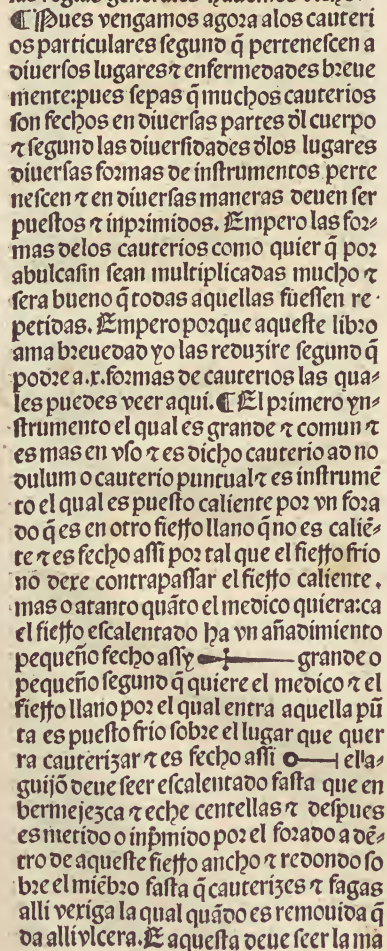 ¶ Pues vengamos agora alos cauteri
os particulares segund q̄ pertenescen a
diuersos lugares ⁊ enfermedades breue
mente:pues sepas q̄ muchos cauterios
son fechos en diuersas partes dl̄ cuerpo
⁊ segund las diuersidades dlos lugares
diuersas formas de instrumentos perte
nescen ⁊ en diuersas maneras deuen ser
puestos ⁊ inprimidos. Empero las for⸗
mas delos cauterios como quier q̄ por
abulcasin sean multiplicadas mucho ⁊
sera bueno q̄ todas aquellas fuessen re
petidas. Empero porque aqueste libro
ama breuedad yo las reduzire segund q̄
podre a.x.formas de cauterios las qua⸗
les puedes veer aqui. ¶ El primero yn⸗
strumento el qual es grande ⁊ comun ⁊
es mas en vso ⁊ es dicho cauterio ad no
dulum o cauterio puntual ⁊ es instrumē
to el qual es puesto caliente por vn fora
do q̄ es en otro fiesso llano q̄ no es caliē⸗
te ⁊ es fecho assi por tal que el fiesso frio
no dexe contrapassar el fiesso caliente.
mas o atanto quāto el medico quiera:ca
el fiesso escalentado ha vn añadimiento
pequeño fecho assy grande o
pequeño segund q̄ quiere el medico ⁊ el
fiesso llano por el qual entra aquella pū
ta es puesto frio sobre el lugar que quer
ra cauterizar ⁊ es fecho assi ella⸗
guijō deue seer escalentado fasta que en
bermejezca ⁊ eche centellas ⁊ despues
es metido o inpmido por el forado a dē⸗
tro de aqueste fiesso ancho ⁊ redondo so
bre el miēbro fasta q̄ cauterizes ⁊ fagas
alli vexiga la qual quādo es remouida q̄
da alli vlcera. E aquesta deue seer la ma